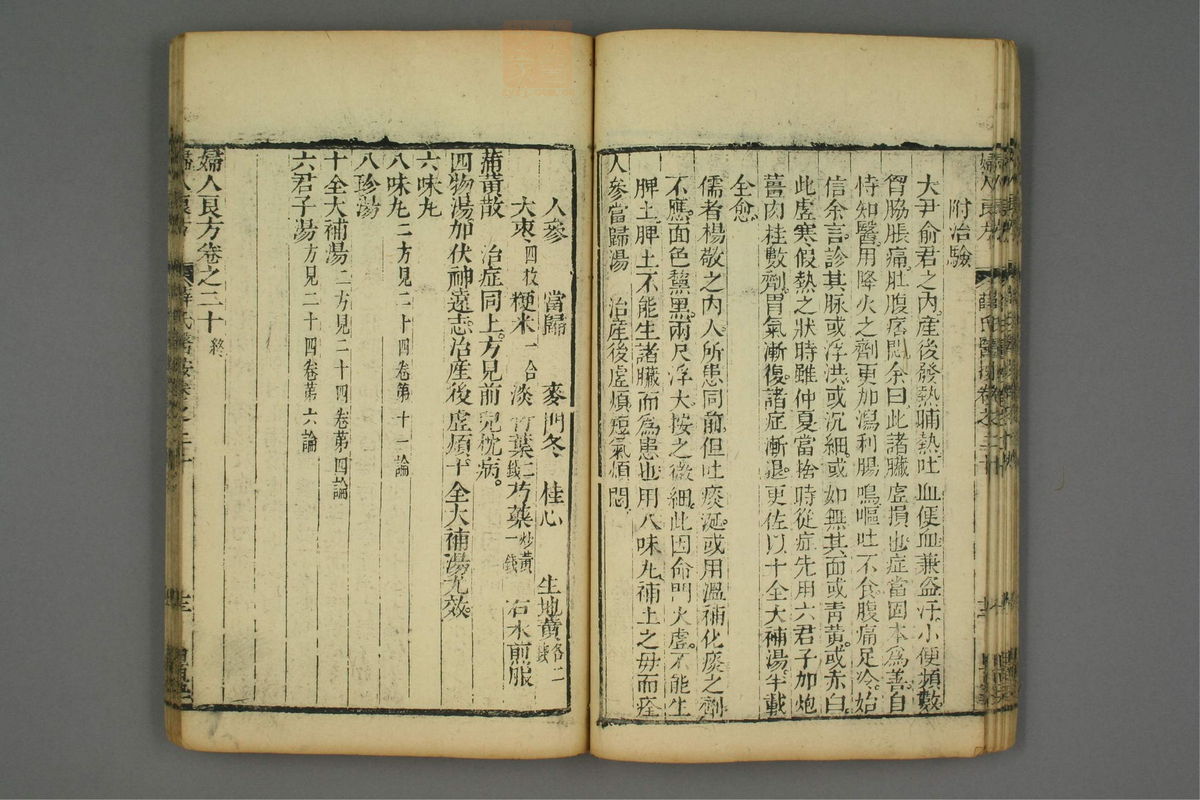 附治驗
大尹俞君之內產後發熱晡熱吐血便血兼盜汗小便頻數
胷脇脹痛肚腹痞悶余曰此諸臟虛損也症當固本為善自
恃知醫用降火之劑更加瀉利腸鳴嘔吐不食腹痛足冷始
信余言診其脉或浮洪或沉細或如無其面或青黃或赤白
此虛寒假熱之狀時雖仲夏當捨時從症先用六君子加炮
薑肉桂數劑胃氣漸復諸症漸退更佐以十全大補湯半載
全愈
儒者楊敬之內人所患同前但吐痰涎或用溫補化痰之劑
不應面色黧黑兩尺浮大按之微細此因命門火虛不能生
脾土脾土不能生諸臟而為患也用八味丸補土之母而痊
人參當歸湯　治產後虛煩短氣煩悶
人參　當歸　麥門冬　桂心　生地黃各二錢
大棗四枚　粳米一合　淡竹葉二錢　芍藥炒黃一錢　右水煎服
蒲黃散　治症同上。方見前兒枕病。
四物湯加茯神遠志治產後虛煩十全大補湯尤效
六味丸
八味丸二方見二十四卷第十一論
八珍湯
十全大補湯二方見二十四卷第四論
六君子湯方見二十四卷第六論
婦人良方卷之二十終